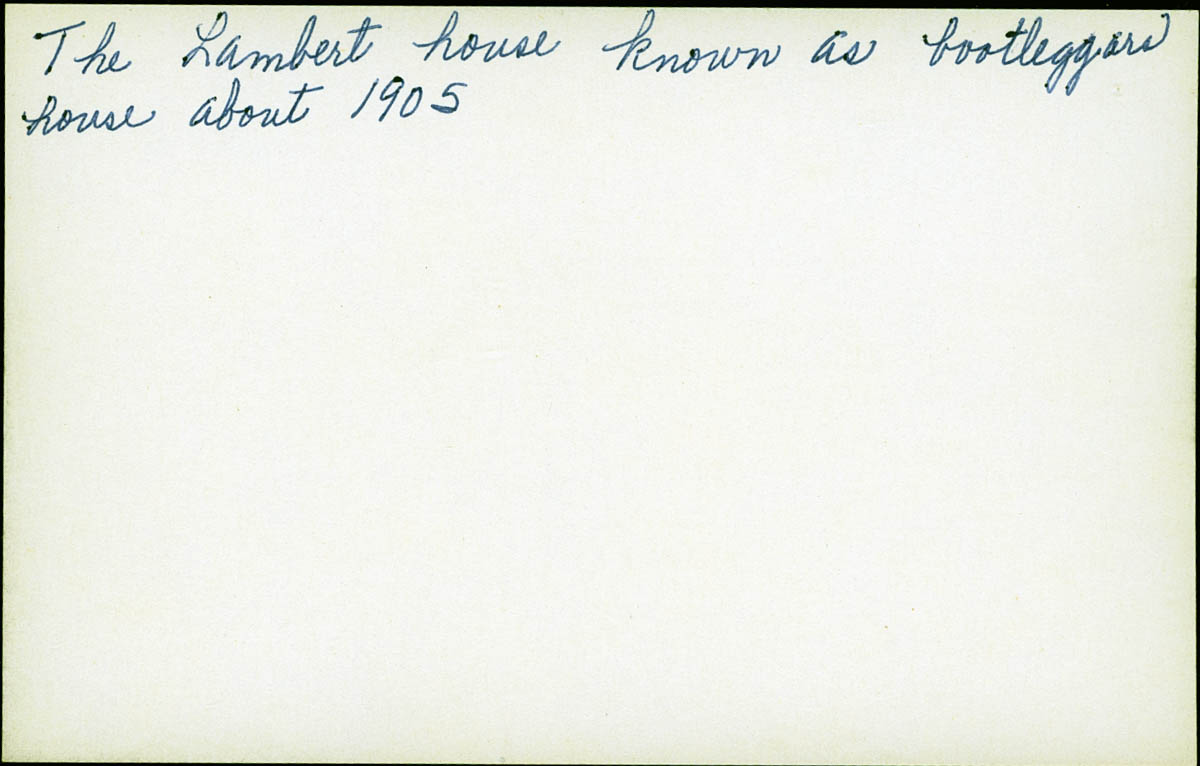 The Lambert house known as bootleggars
house about 1905